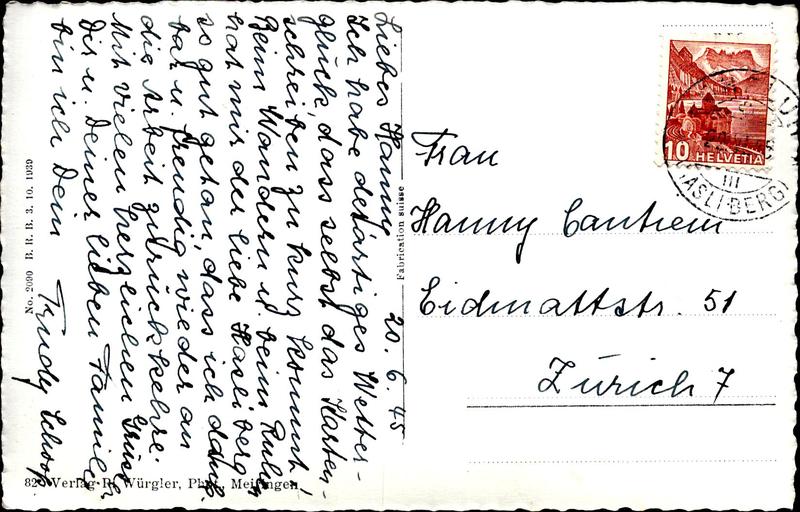 Liebes Hanny 20.6.45
Ich habe derartiges Wetter-
glück, dass selbst das Karten-
schreiben zu kurz kommt,
Beim Wandern u. beim Ruhen
hat mir der liebe Hasliberg
so gut getan, dass ich dankbar
u. freudig wieder an
die Arbeit zurückkehre.
Mit vielen herzlichen Grüssen
Dir u. Deiner lieben Familie
bin ich Dein Trudy Schoop
Frau
Hanny Cantieni
Eidmattstr. 51
Zürich 7
10 HELVETIA
III
(HASLI-BERG)
Fabrication suisse
No. 2090 B. R. B. 3. 10. 1939
Verlag R. Würgler, Phot., Meiringen